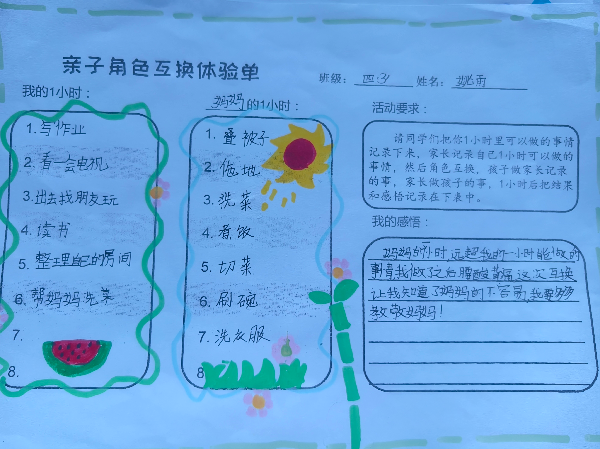 亲子角色互换体验单
班级: 四(3) 姓名: 姚雨
我的1小时:
1. 写作业
2. 看一会电视
3. 出去找朋友玩
4. 读书
5. 整理自己的房间
6. 帮妈妈洗菜
7.
8.
妈妈的1小时:
1. 叠被子
2. 拖地
3. 洗菜
4. 煮饭
5. 切菜
6. 刷碗
7. 洗衣服
8
活动要求:
请同学们把你1小时里可以做的事情
记录下来，家长记录自己1小时可以做的
事情，然后角色互换，孩子做家长记录
的事，家长做孩子的事，1小时后把结果
和感悟记录在下表中。
我的感悟:
妈妈的1小时远超我的一小时能做的
事情我做了之后腰酸背痛这次互换
让我知道了妈妈的不容易,我要多多
孝敬妈妈!